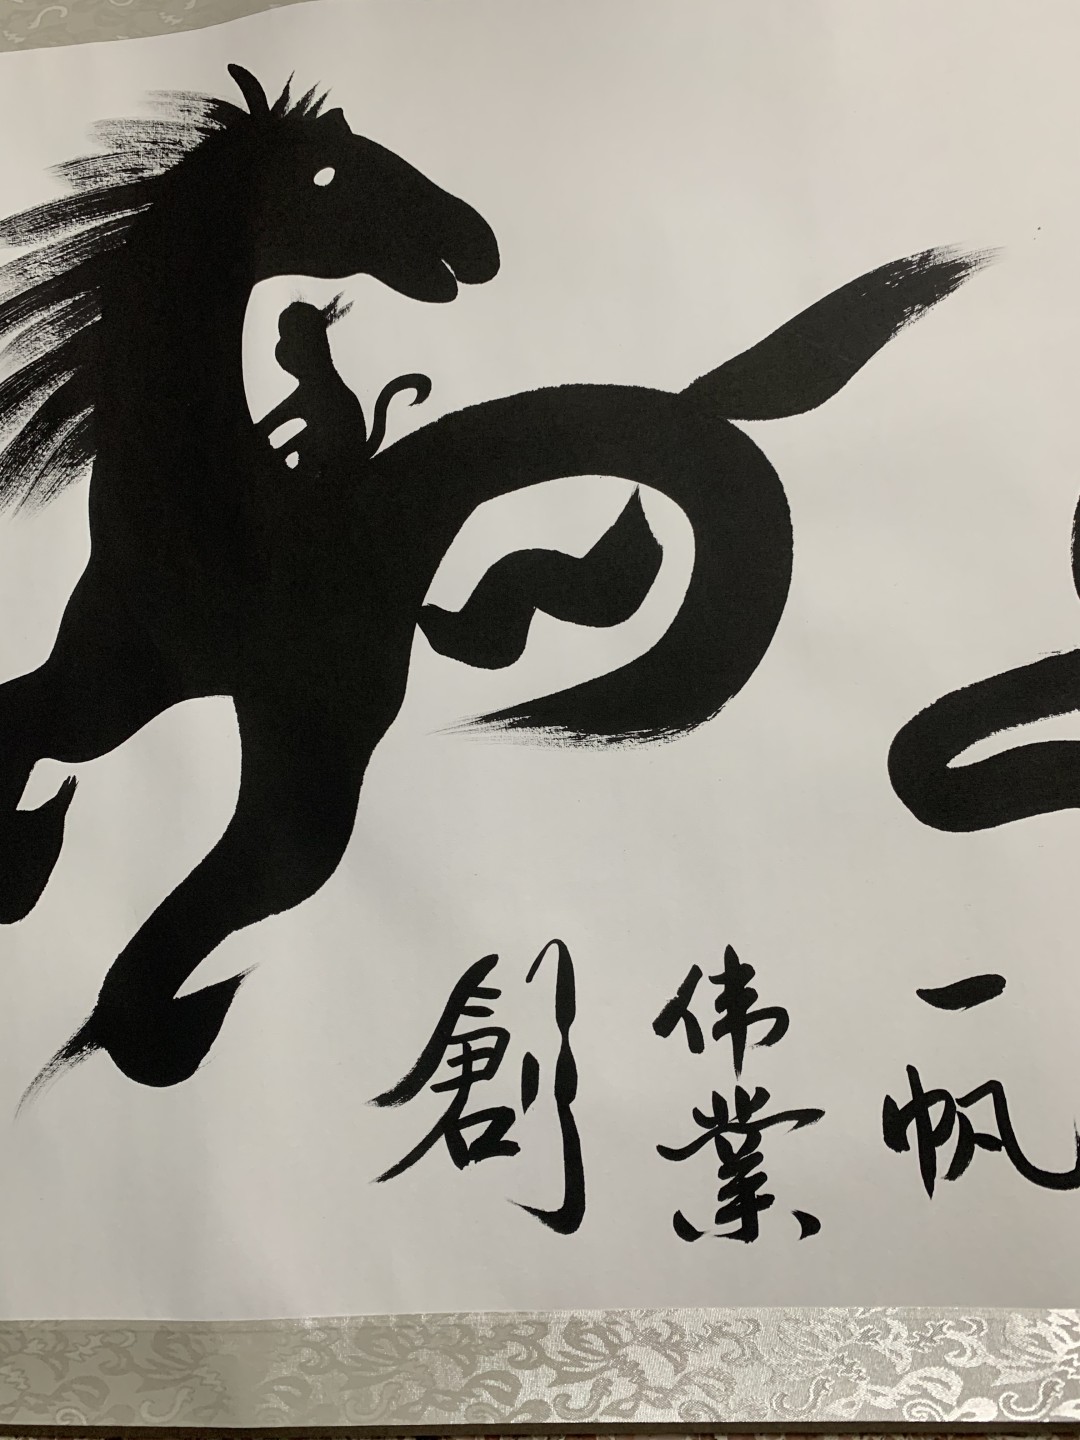 創
伟業
一帆